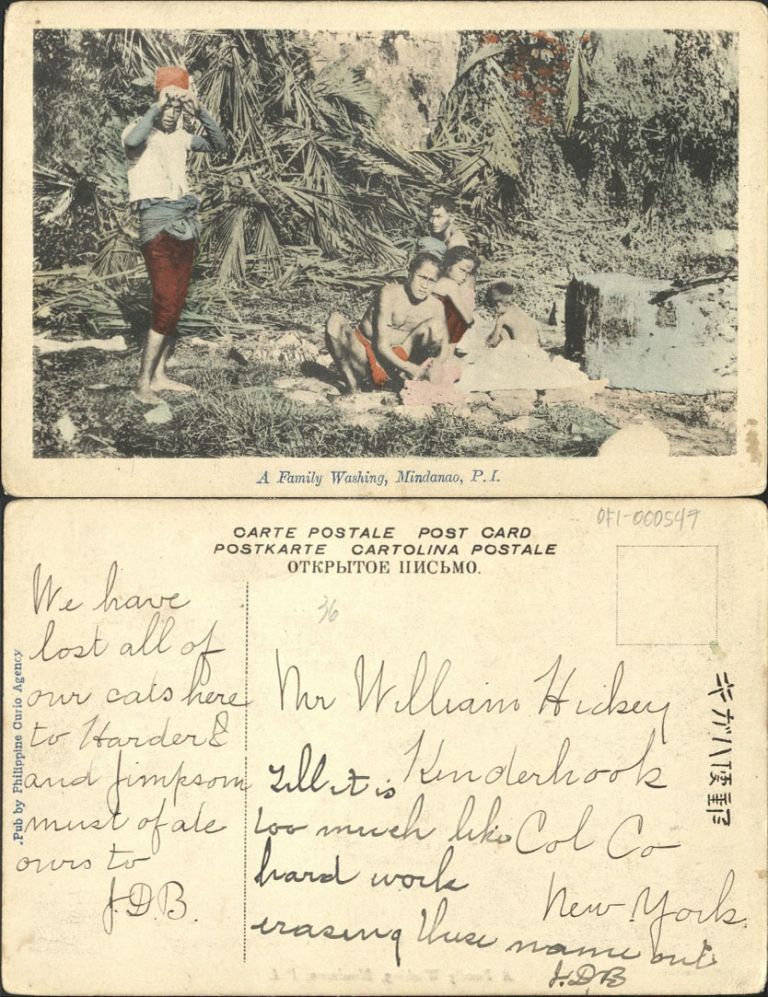 A Family Washing, Mindanao, P.I.
CARTE POSTALE POST CARD
POSTKARTE CARTOLINA POSTALE
ОТКРЫТОЕ ПИСЬМО.
0F1-000547
36
.Pub by Philippine Curio Agency
We have
lost all of
our cats here
to Harder &
and Jimpsom
must of ate
ours to
J.D.B.
Mr William Hickey
Kinderhook
Col Co
New York.
Lill it is
too much like
hard work
erasing these name out
J.D.B